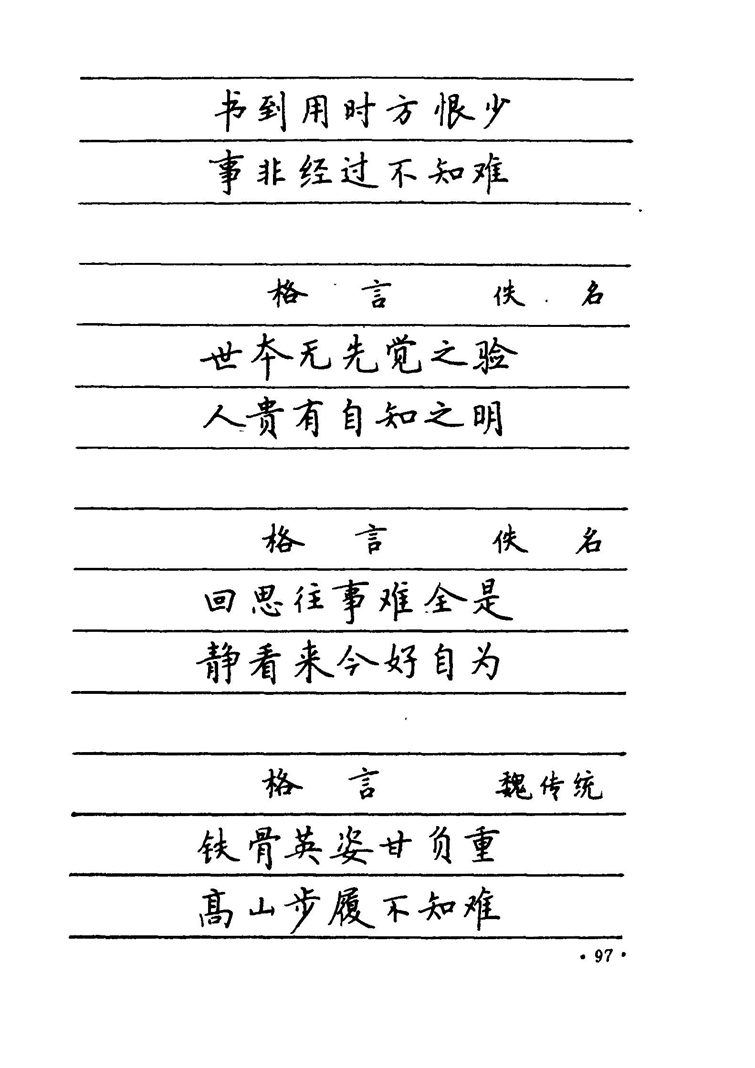 书到用时方恨少
事非经过不知难
格言 佚名
世本无先觉之验
人贵有自知之明
格言 佚名
回思往事难全是
静看来今好自为
格言 魏传统
铁骨英姿甘负重
高山步履不知难
·97·